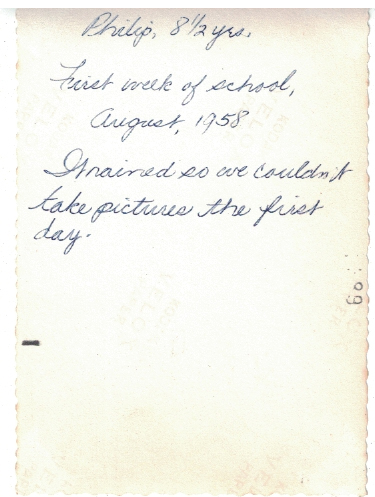 Philip, 8 1/2 yrs.
First week of school,
August, 1958
It rained so we couldn't
take pictures the first
day.